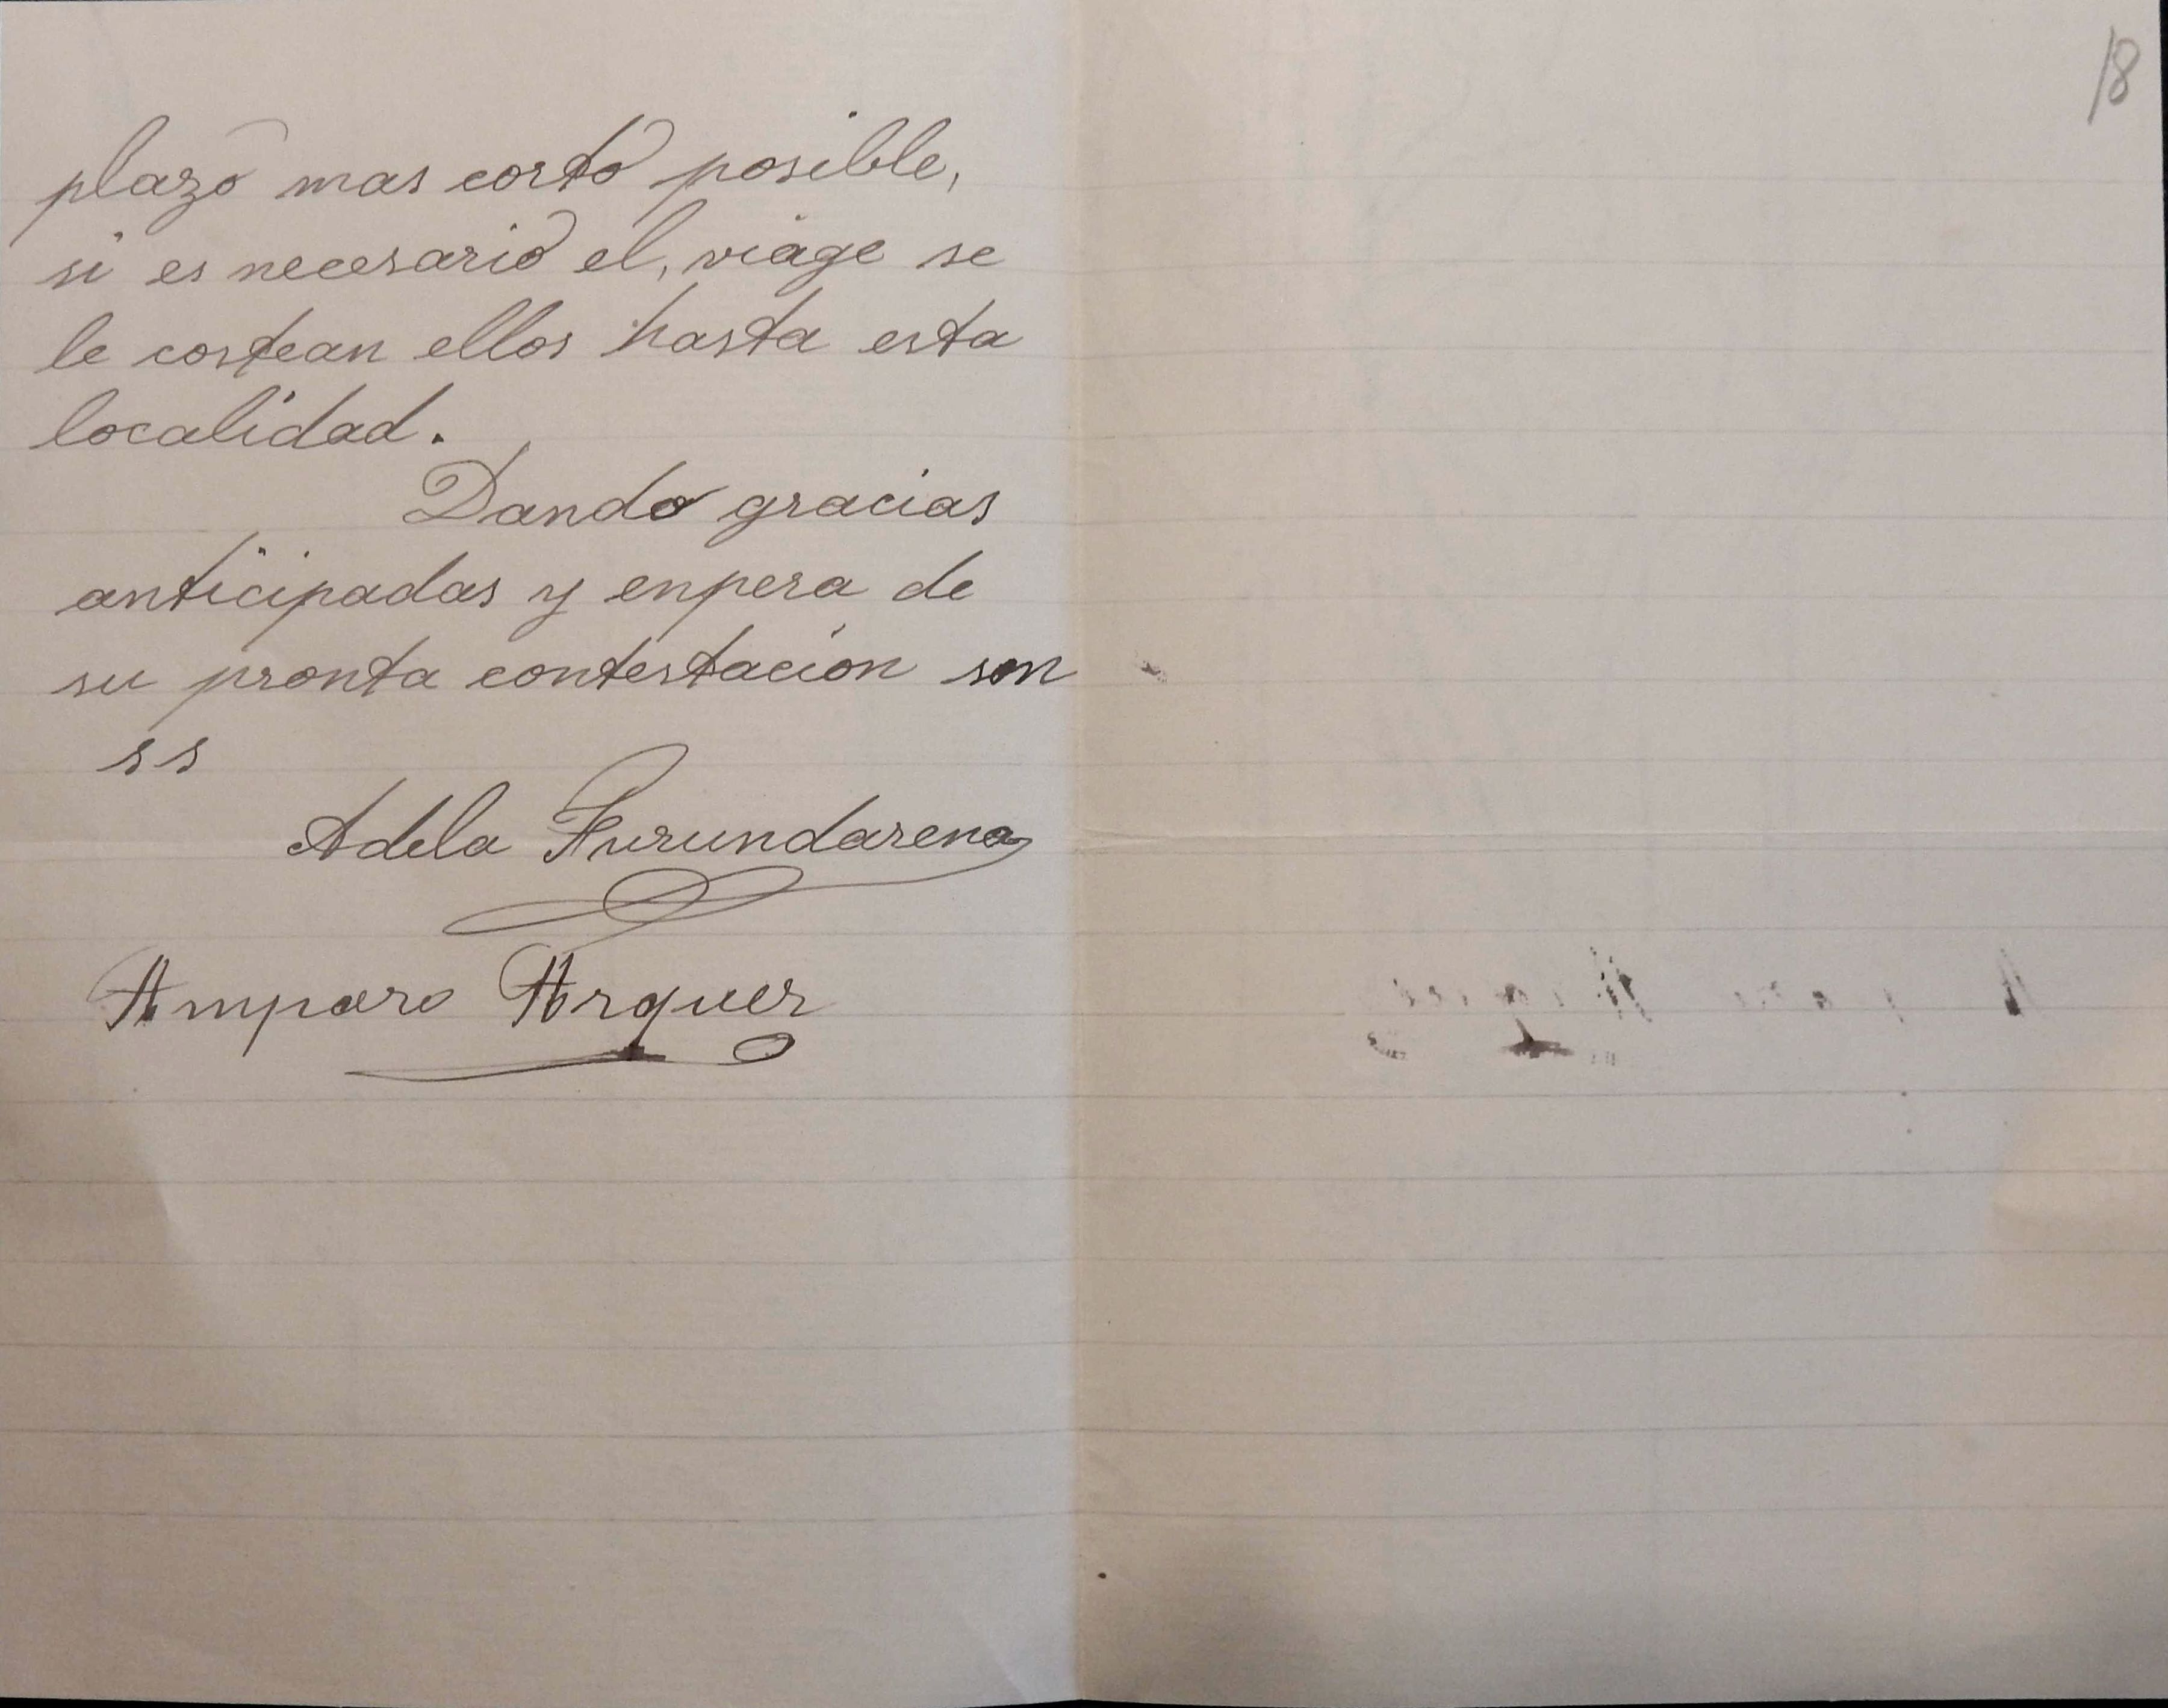 plazo mas corto posible,
si es necesario el, viage se
le costean ellos hasta esta
localidad.
Dando gracias
anticipadas y enpera de
su pronta contestación son
ss
Adela Furundarena
Amparo Arquer
18